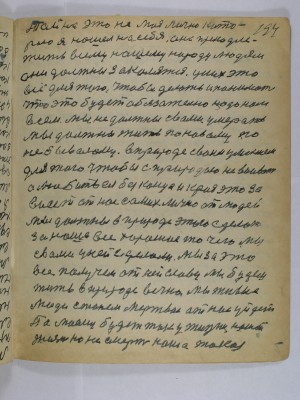 Тайна это не моя лично кото- 154
рую я нашел на себя, она принадле-
жить всему нашему народу людям
они должны за взяться, у них это
всё для того, чтобы делать и понимать
что это будет обязательно надо нам
всем мы не должны с вами умерать
мы должны жить по новому
не бывалому. В природе своим умением
для того чтобы с природаю не воивать
а любить ея до конца и края это за
висет от нас самих лично от людей
мы должны в природе этого сделать
за наше все хорошее то чего мы
с вами у ней сделаем, мы за это
все получем от ней славу мы будем
жить в природе вечно, мы живые
люди станем мертвое от нас уйдет
По моему будет такая жизня, 
жизня но не смерть наша такая